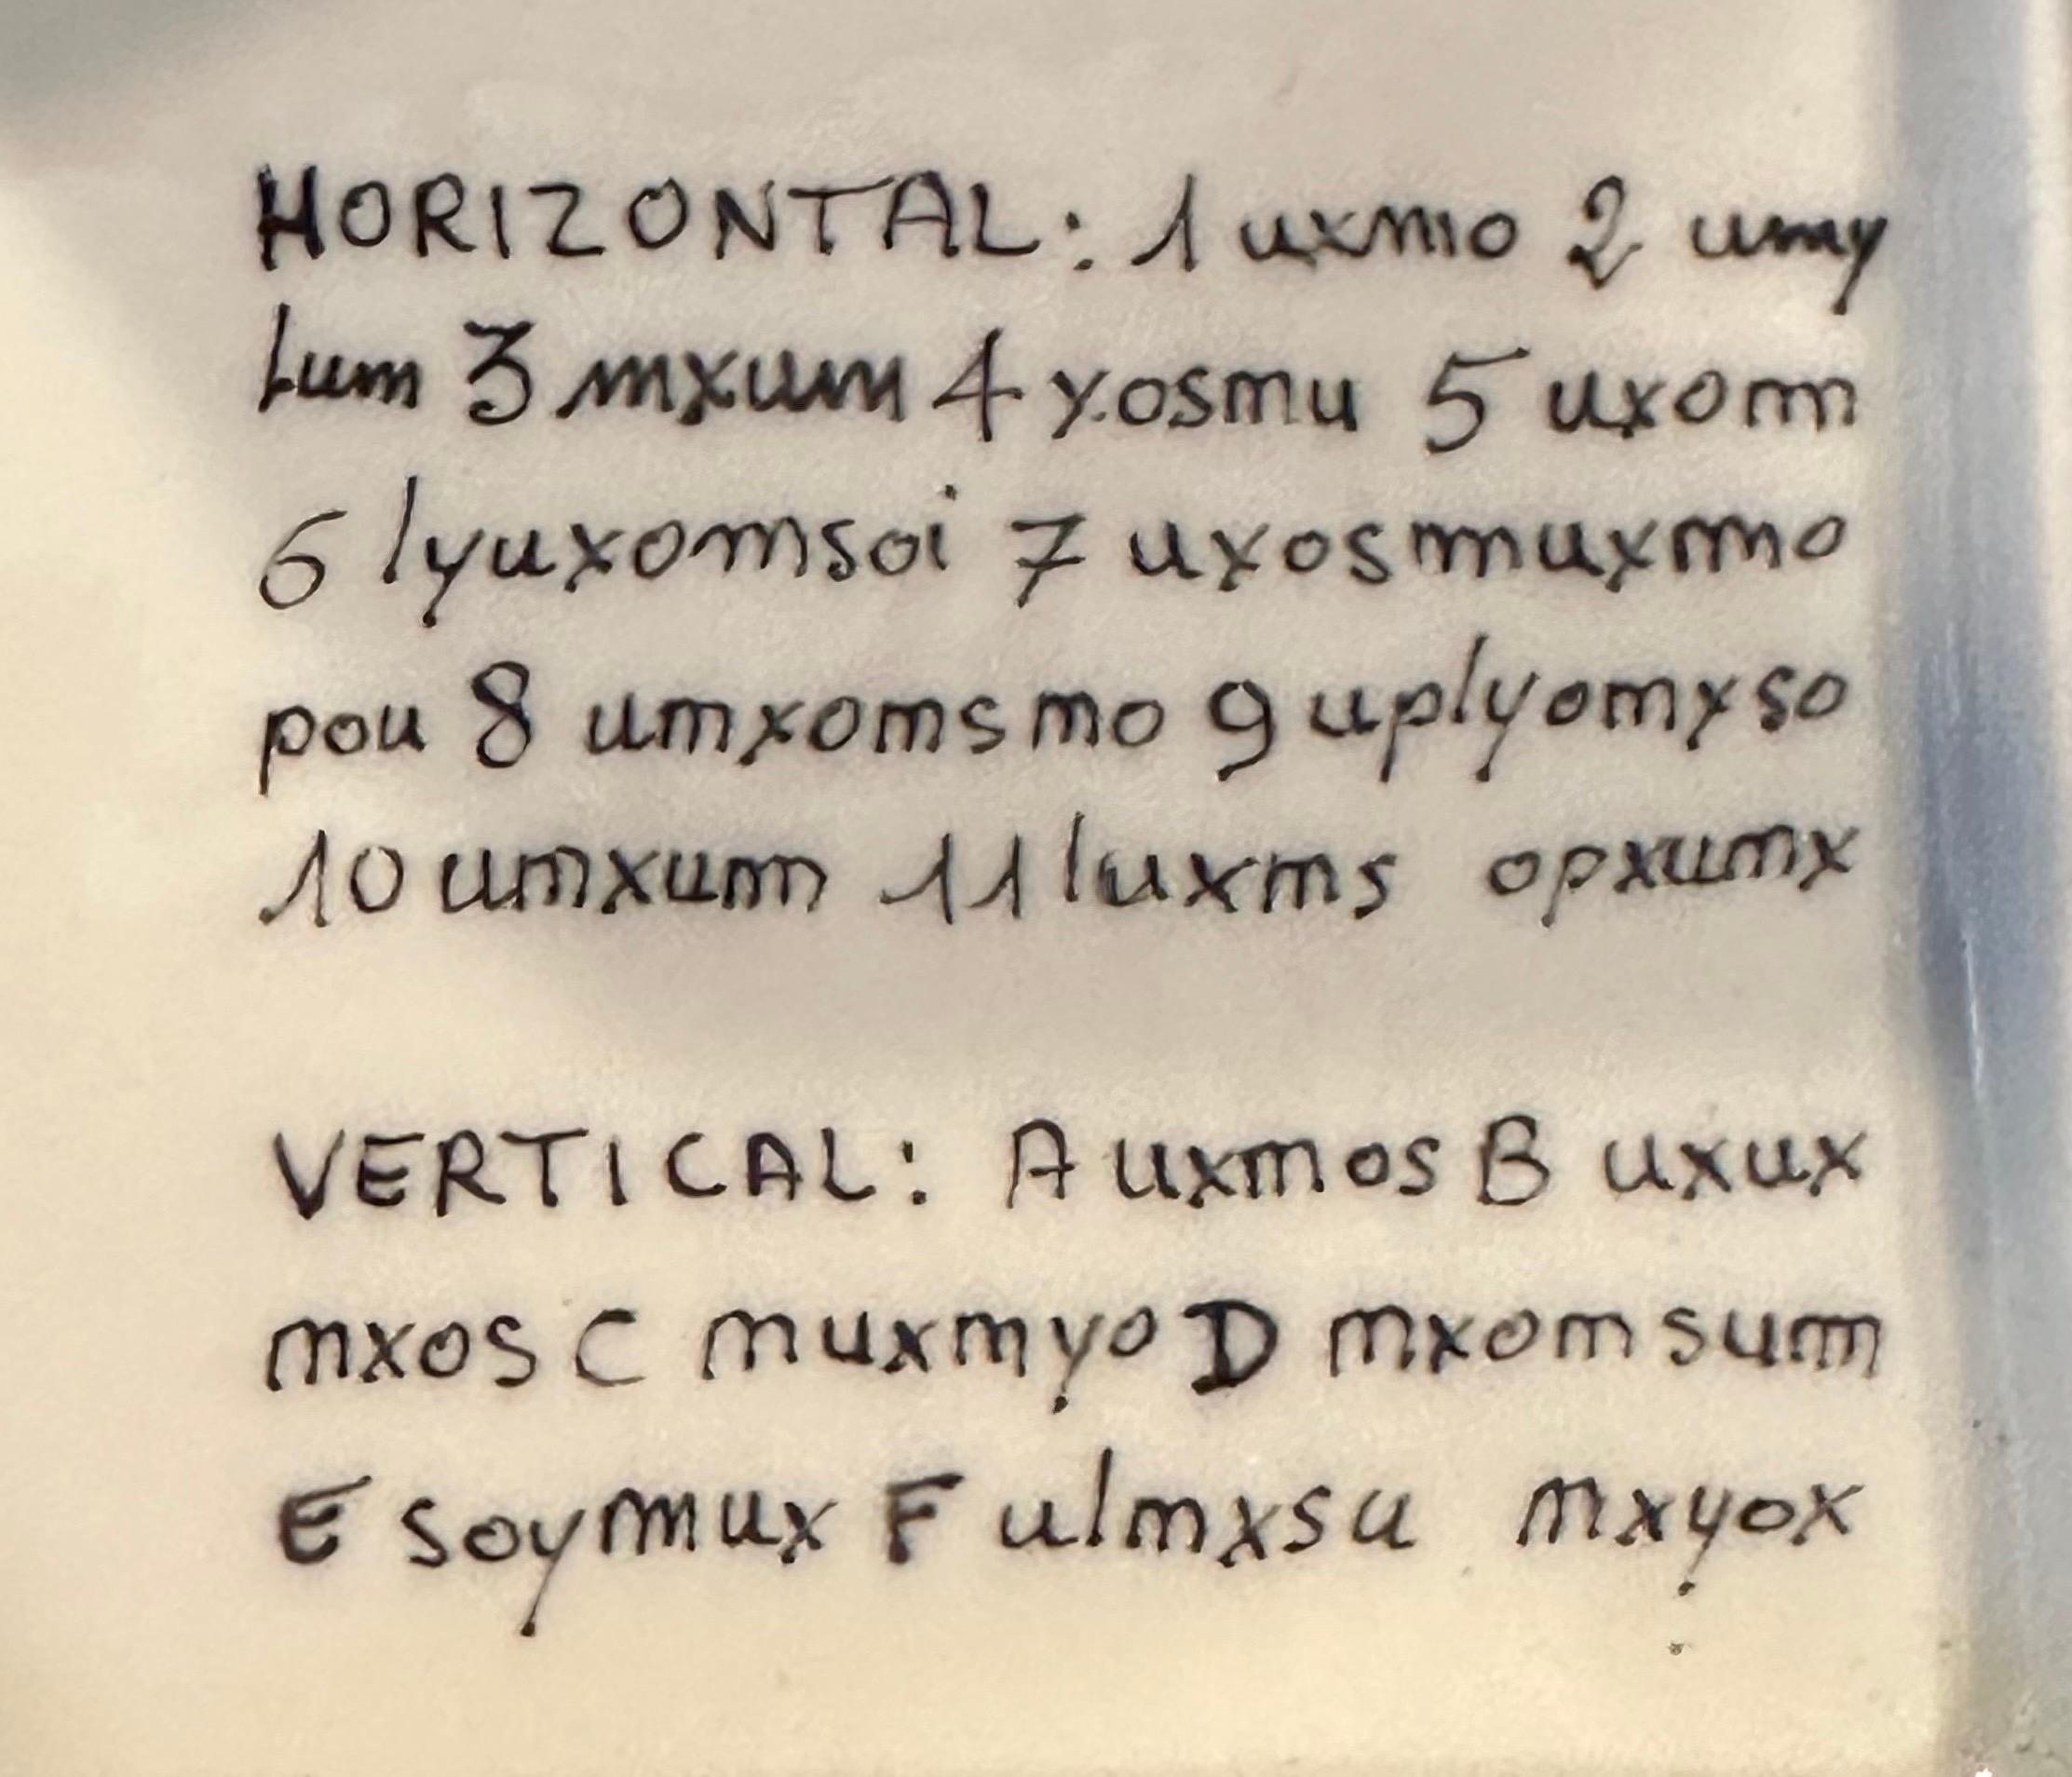 HORIZONTAL: 1 uxmo 2 umy
lum 3 mxum 4 yosmu 5 uxom
6 lyuxomsoi 7 uxosmuxmo
pou 8 umxomsmo 9 uplyomxso
10 umxum 11 luxms opxumx
VERTICAL: A uxmos B uxux
mxos C muxmyo D mxomsum
E soymux F ulmxsu mxyox